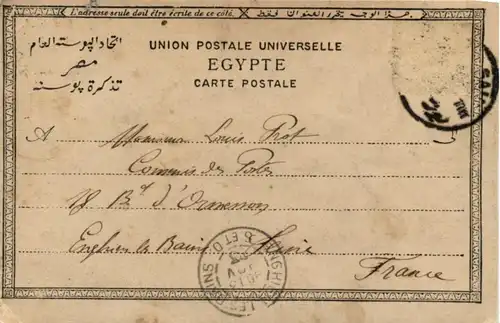 L'adresse seule doit être écrite de ce côté. هذا الوجه يحرر العنوان فقط
اتحاد البوسته العام
مصر
تذكرة بوسته
UNION POSTALE UNIVERSELLE
EGYPTE
CARTE POSTALE
A Monsieur Louis
Commis des Postes
18 Bd d'Ormesson
Enghien les Bains
France
ENGHIEN LES BAINS
S. ET O.